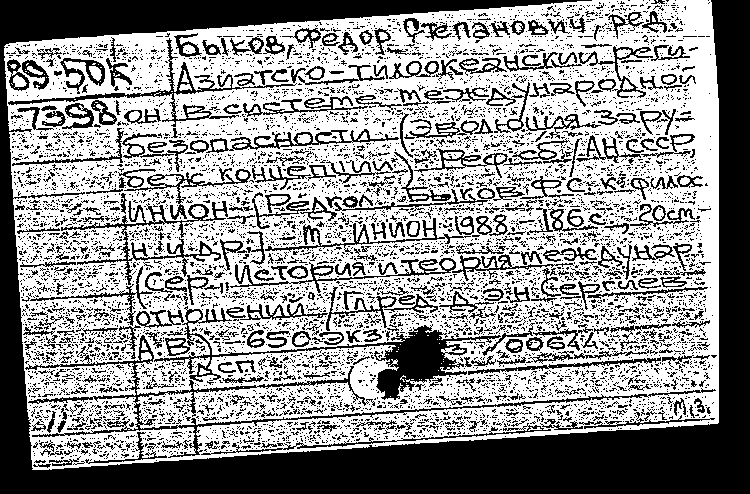 Быков, Федор Степанович, ред.
89-50К
Азиатско-тихоокеанский реги-
7398
он в системе международной
безопасности. (Эволюция зару-
беж. концепции). Реф. сб. / АН СССР,
ИНИОН; [Редкол. Быков Ф.С. к. филос.
н. и др.]. - М. : ИНИОН, 1988. - 186 с. ; 20 см. -
(Сер. "История и теория междунар.
отношений" / Гл. ред. д. э. н. Сергиев
А.В.) - 650 экз. з. /00644
ДСП
11 М.З.